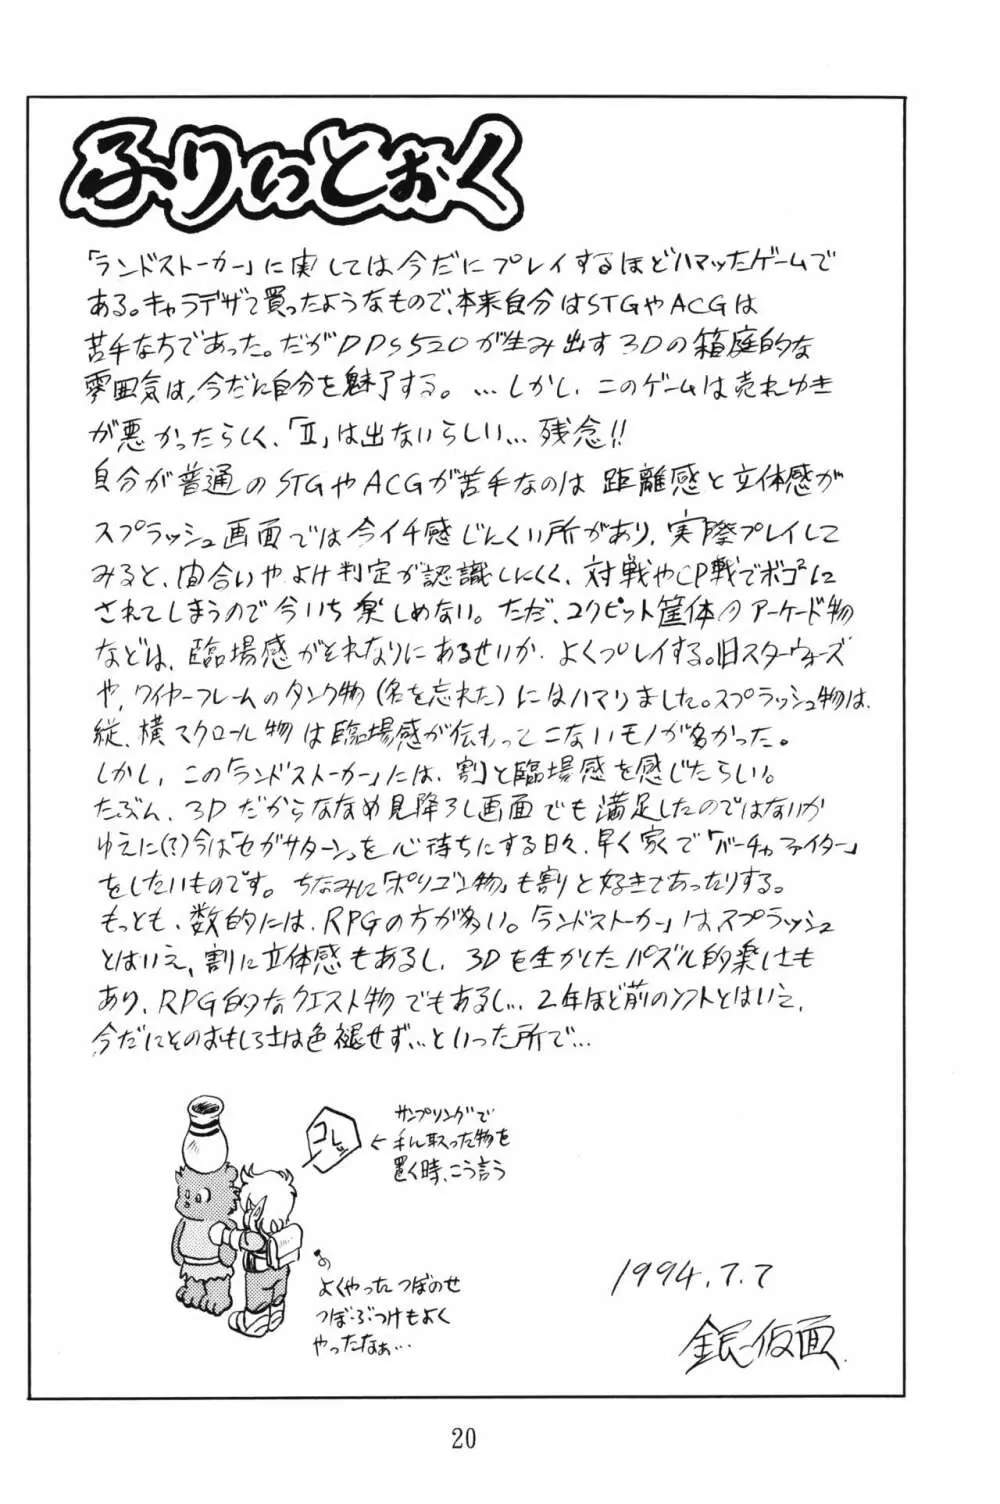 ふりいとおく
「ランドストーカー」に実しては今だにプレイするほどハマッたゲームで
ある。キャラデザで買ったようなもので、本来自分はSTGやACGは
苦手な方であった。だがDDS520が生み出す3Dの箱庭的な
雰囲気は、今だに自分を魅了する。…しかし、このゲームは売れゆき
が悪かったらしく、「Ⅱ」は出ないらしい…残念!!
自分が普通のSTGやACGが苦手なのは距離感と立体感が
スプラッシュ画面では今イチ感じにくい所があり、実際プレイして
みると、間合いやよけ判定が認識しにくく、対戦やCP戦でボコに
されてしまうので今いち楽しめない。ただ、コクピット筐体のアーケード物
などは、臨場感がそれなりにあるせいか、よくプレイする。旧スターウォーズ
や、ワイヤーフレームのタンク物(名を忘れた)にはハマりました。スプラッシュ物は、
縦、横スクロール物は臨場感が伝わってこないモノが多かった。
しかし、この「ランドストーカー」には、割と臨場感を感じたらしい。
たぶん、3Dだからななめ見降ろし画面でも満足したのではないか
ゆえに(?)今は「セガサターン」を心待ちにする日々、早く家で「バーチャファイター」
をしたいものです。ちなみに「ポリゴン物」も割と好きであったりする。
もっとも、数的には、RPGの方が多い。「ランドストーカー」は、スプラッシュ
とはいえ、割に立体感もあるし、3Dを生かしたパズル的楽しさも
あり、RPG的なクエスト物でもあるし… 2年ほど前のソフトとはいえ、
今だにそのおもしろさは色褪せず…といった所で…
コレッ
サンプリングで
←手に取った物を
置く時、こう言う
よくやったつぼのせ
つぼぶつけもよく
やったなぁ…
1994.7.7
銀仮面
20